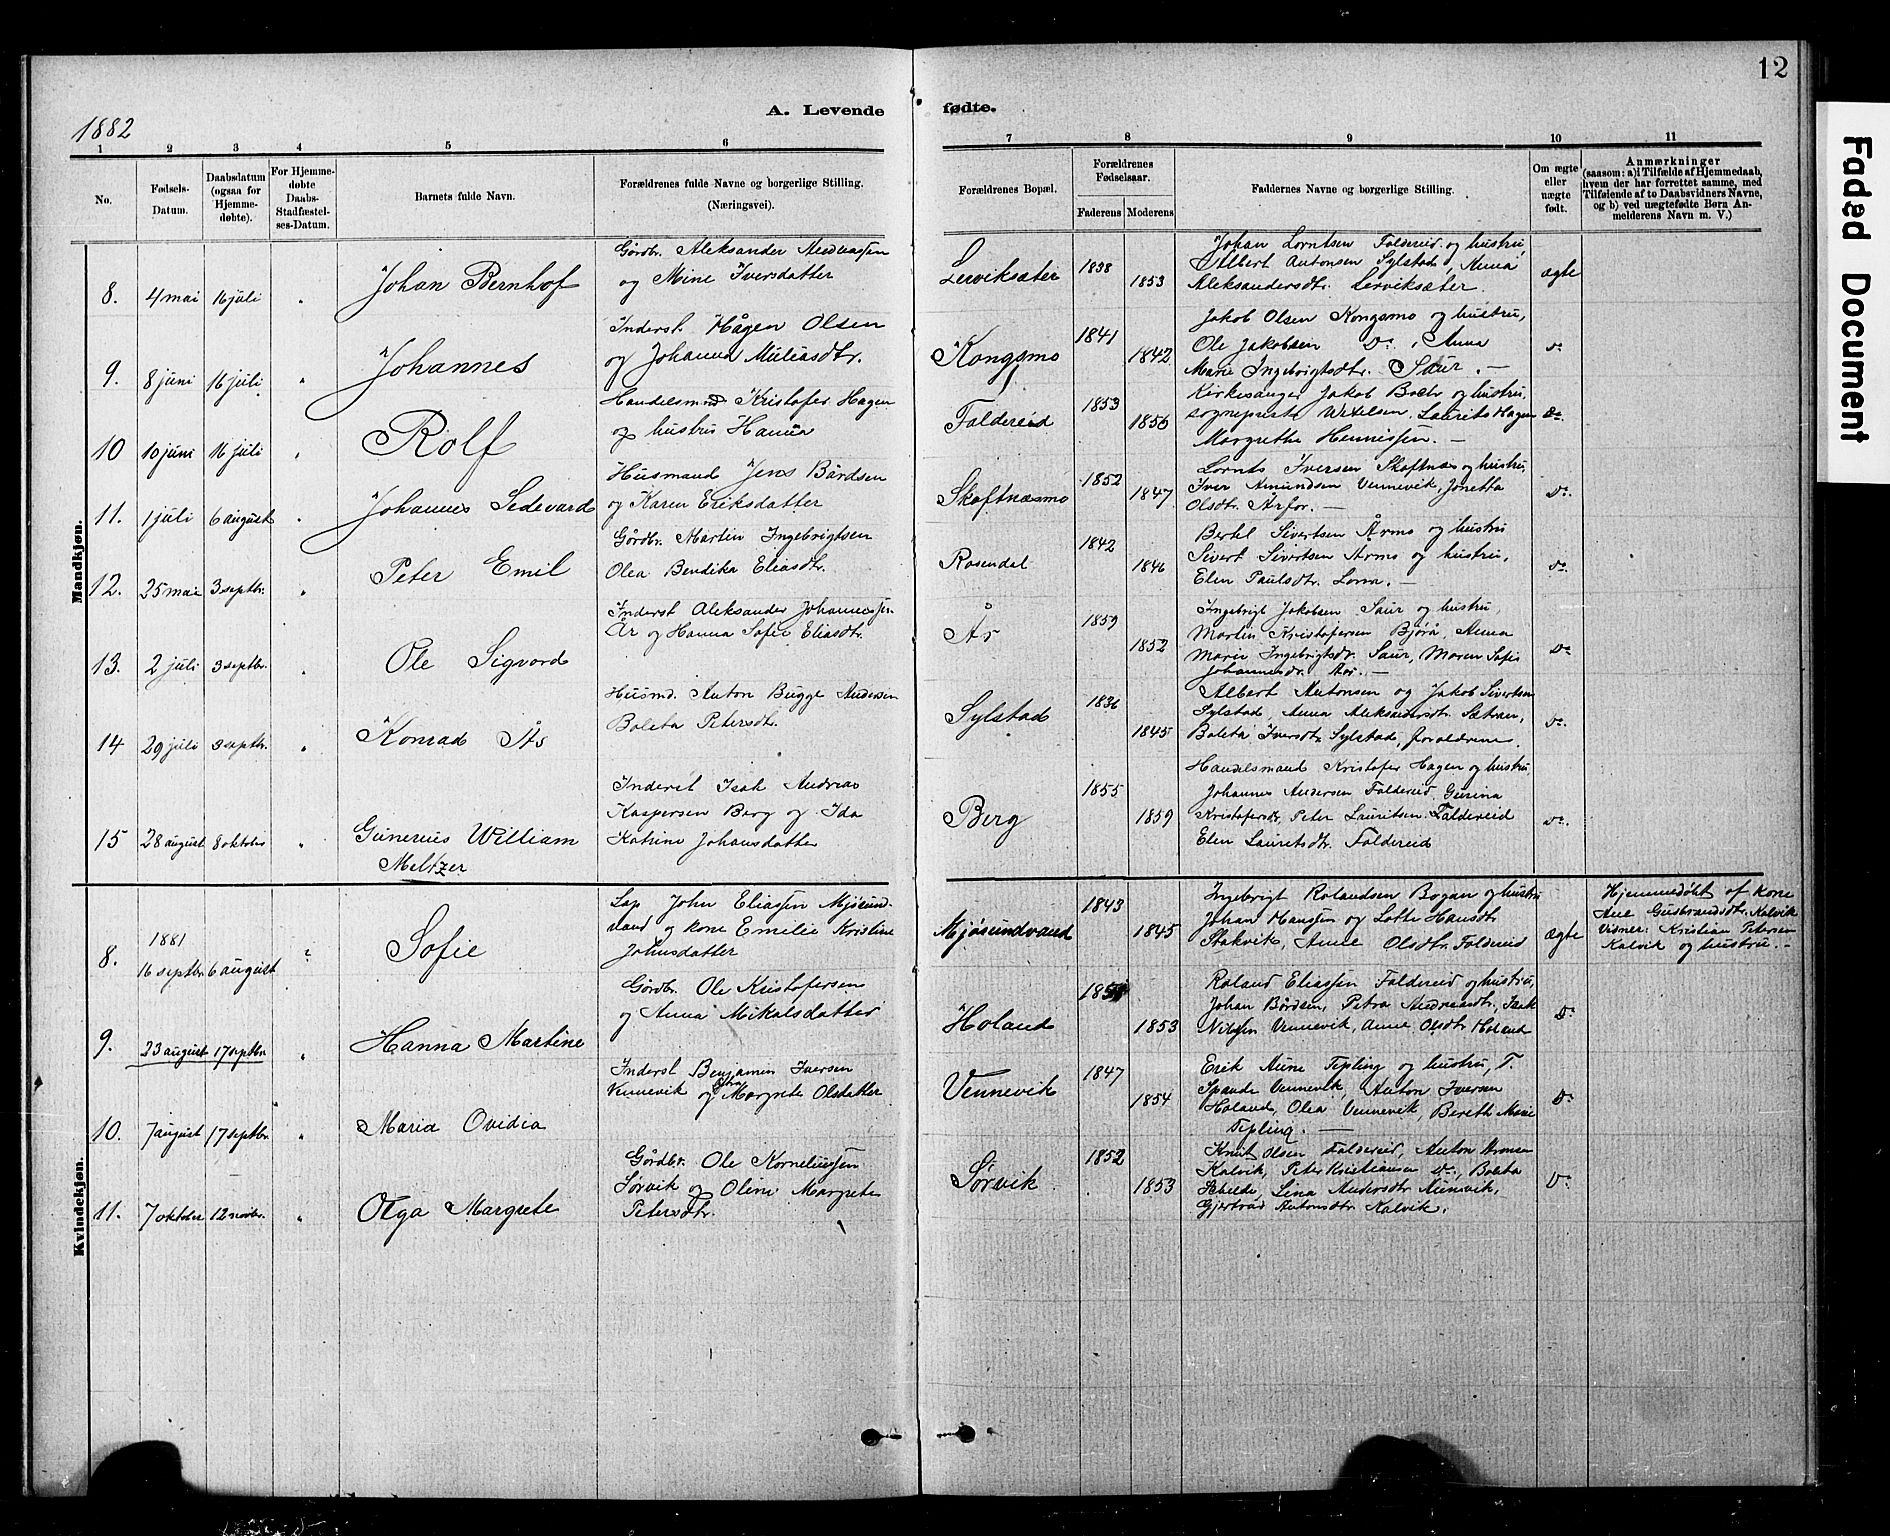 12
Faded Document
A. Levende fødte.
1882
1 2 3 4 5 6 7 8 9 10 11
No.
Fødsels-Datum.
Daabsdatum (ogsaa for Hjemme-døbte).
For Hjemme-døbte Daabs-Stadfæstel-ses-Datum.
Barnets fulde Navn.
Forældrenes fulde Navne og borgerlige Stilling. (Næringsvei).
Forældrenes Bopæl.
Forældrenes Fødselsaar.
Faderens Moderens
Faddernes Navne og borgerlige Stilling.
Om ægte eller nægte født.
Anmærkninger
(saasom: a) i Tilfælde af Hjemmedaab,
hvem der har forrettet samme, med
Tilføiende af to Daabsvidners Navne,
og b) ved uægtefødte Børn An-
melderens Navn m. V.)
Mandkjøn.
8. 4 mai 16 juli " Johan Bernhof
Gårdbr. Aleksander Andreassen
og Mine Iversdatter
Lerviksæter 1838 1853
Johan Lorntsen Foldereid og hustru
Albert Antonsen Sylstad, Anna
Aleksandersdtr. Lerviksæter.
ægte
9. 8 juni 16 juli " Johannes
Inderst. Hågen Olsen
og Johanna Miliasdtr.
Kongsmo 1841 1842
Jakob Olsen Kongsmo og hustru,
Ole Jakobsen Do, Anna
Marie Ingebrigtsdtr. Saur. —
Do
10 10 juni 16 juli " Rolf
Handelsmnd Kristofer Hagen
og hustru Hanna
Foldereid 1853 1856
Kirkesanger Jakob Bøehr og hustru,
sogneprest Wexelsen, Laurits Hagen
Margrethe Hennissen. —
Do
11. 1 juli 6 august " Johannes Sedevard
Husmand Jens Bårdsen
og Karen Eriksdatter
Skoftnæsmo 1852 1847
Lornts Iversen Skoftnæs og hustru,
Iver Amundsen Vennevik, Jonetta
Olsdtr. Årfor. —
Do.
12. 25 mai 3 septbr. " Peter Emil
Gårdbr. Martin Ingebrigtsen
Olea Bendika Eliasdtr.
Rosendal 1842 1846
Bertel Sivertsen Årmo og hustru
Sivert Sivertsen Årmo og hustru,
Elen Paulsdtr. —
Do.
13. 2 juli 3 septbr. " Ole Sigvard
Inderst Aleksander Johannessen
År og Hanna Sofie Eliasdtr.
År 1859 1852
Ingebrigt Jakobsen Saur og hustru,
Martin Kristofersen Bjørå, Anna
Marie Ingebrigtsdr. Saur, Maren Sofie
Johannesdr. Aar. —
Do
14 29 juli 3 septbr. " Konrad Ås
Husmd. Anton Bugge Andersen
Boleta Petersdtr.
Sylstad 1836 1845
Albert Antonsen og Jakob Sivertsen
Sylstad, Anna Aleksandersdtr. Sætran,
Boleta Iversdtr Sylstad, forældrene.
Do.
15 28 august 8 oktober " Gunerius William
Meltzer
Inderst Isak Andreas
Kaspersen Berg og Ida
Katrine Johansdatter
Berg 1855 1859
Handelsmand Kristofer Hagen og hustru,
Johannes Andersen Foldereid, Gurina
Kristofersdr, Peter Lauritsen Foldereid
Elen Lauritsdtr. Foldereid
Do.
Kvindekjøn.
8. 1881 16 septbr. 6 august " Sofie
Lap John Eliassen Mjøsund-
vand og kone Emelie Kristine
Johnsdatter
Mjøsundvand 1843 1845
Ingebrigt Rolandsen Bogan og hustru
Johan Hanssen og Lotte Hansdtr
Stakvik, Anne Olsdtr. Foldereid
ægte
Hjemmedøbt af kone
Ane Gusbrandsdtr. Kalvik
Visner: Kristian Petersen
Kalvik og hustru. –
9. 23 august 17 septbr " Hanna Martine
Gårdbr. Ole Kristofersen
og Anna Mikalsdatter
Holand 1853
Roland Eliassen Foldereid og hustru,
Johan Bårdsen, Petra Andreasdtr., Isak
Nilssen Vennevik, Anne Olsdtr Holand
Do
10. 7 august 17 septbr. " Maria Ovidia
Inderst Benjamin Iversen
Vennevik og Margrete Olsdatter
Vennevik 1847 1854
Erik Aune Tepling og hustru, T.
Spande Vennevik, Anton Iversen
Holand, Olea Vennevik, Bereth Mine
Tepling. —
Do
11. 7 oktober 12 novbr. " Olga Margrete
Gårdbr. Ole Korneliussen
Sørvik og Oline Margrete
Petersdtr.
Sørvik 1852 1853
Knut Olsen Foldereid, Anton
Kalvik, Peter Kristiansen Do, Boleta
Lina Andersdtr
Gjertrud Antonsdtr. Kalvik.
Do.